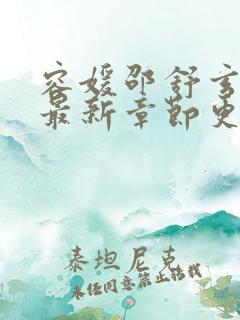 容媛邵舒玄
最新章节更
泰坦尼克
未经同意禁止转载